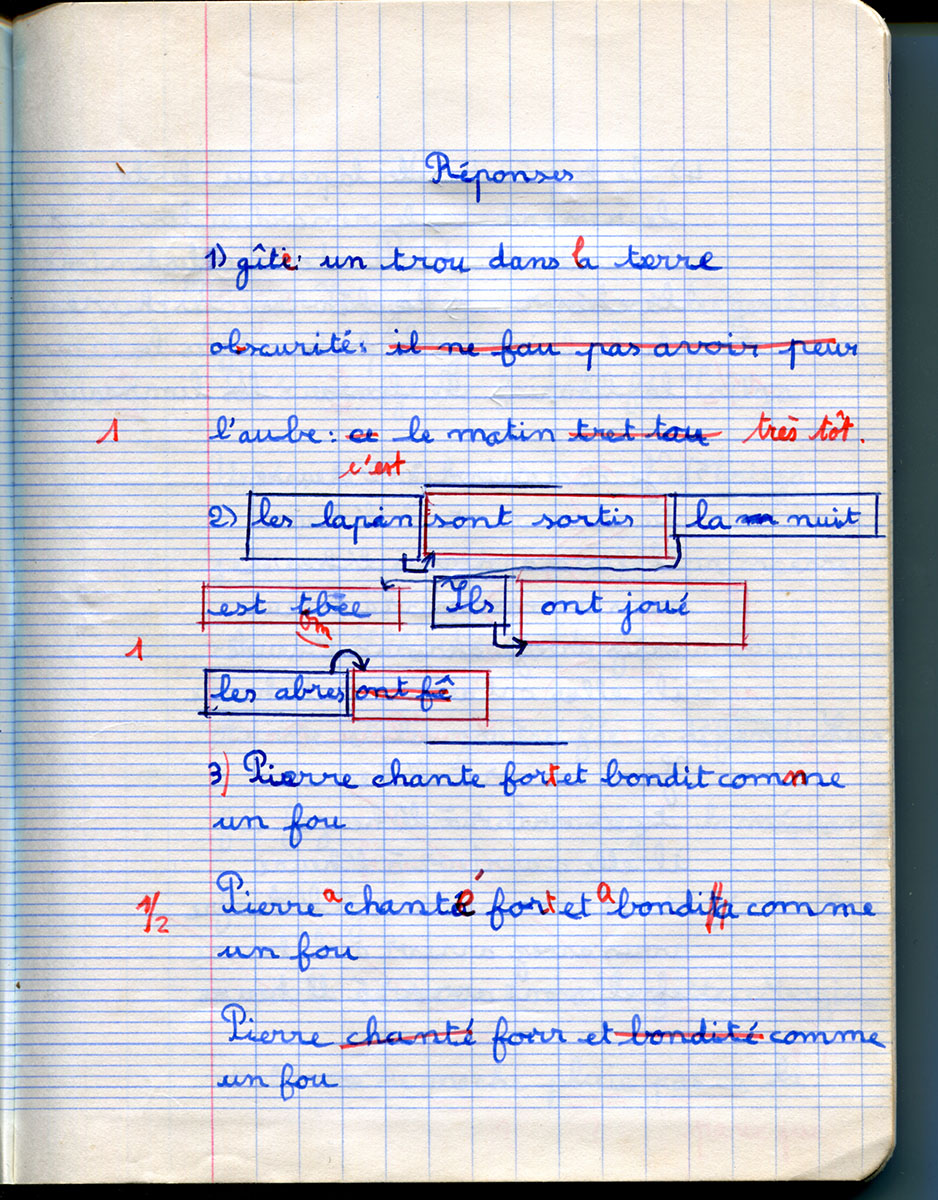 Réponses
1) gîte: un trou dans la terre
obscurité: il ne fau pas avoir peur
1 l'aube: ce le matin tret tau très tôt.
c'est
2) les lapin sont sortis la nuit
est tbée Ils ont joué
om
1
les abres ont fê
3) Pierre chante fort et bondit comme
un fou
1/2 Pierre a chanté fort et a bondit comme
un fou
Pierre chanté forr et bondité comme
un fou